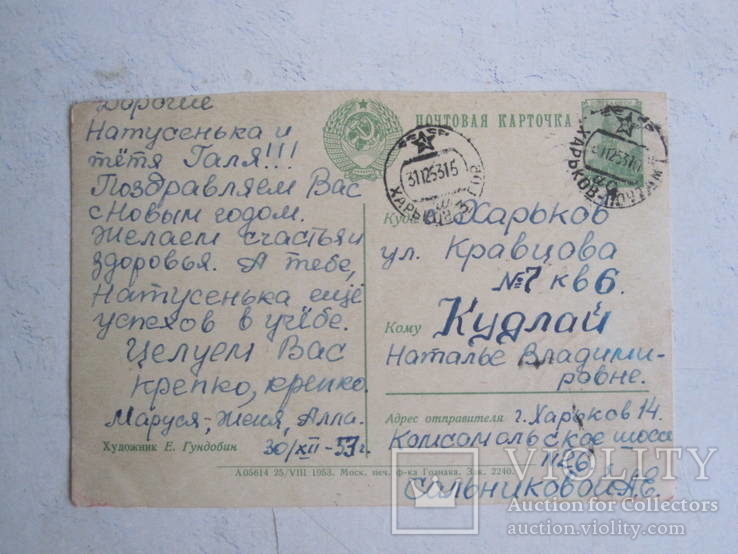 Дорогие
Натусенька и
тётя Галя!!!
Поздравляем Вас
с Новым годом.
Желаем счастья и
здоровья. А тебе,
Натусенька ещё
успехов в учёбе.
Целуем Вас
крепко, крепко.
Маруся, Женя, Алла.
30/XII-53 г.
Художник Е. Гундобин
ПОЧТОВАЯ КАРТОЧКА
311253 15
ХАРЬКОВ
ХАРЬКОВ-ПОЧТАМТ
Куда г. Харьков
ул. Кравцова
№7 кв 6.
Кому Кудлай
Наталье Владими-
ровне.
Адрес отправителя г. Харьков 14.
Комсомольское шоссе
Сальниковой А.С.
А05614 25/VIII 1953. Моск. печ. ф-ка Гознака. Зак. 2240.
VIOLITY
Auction for Collectors
auction.violity.com